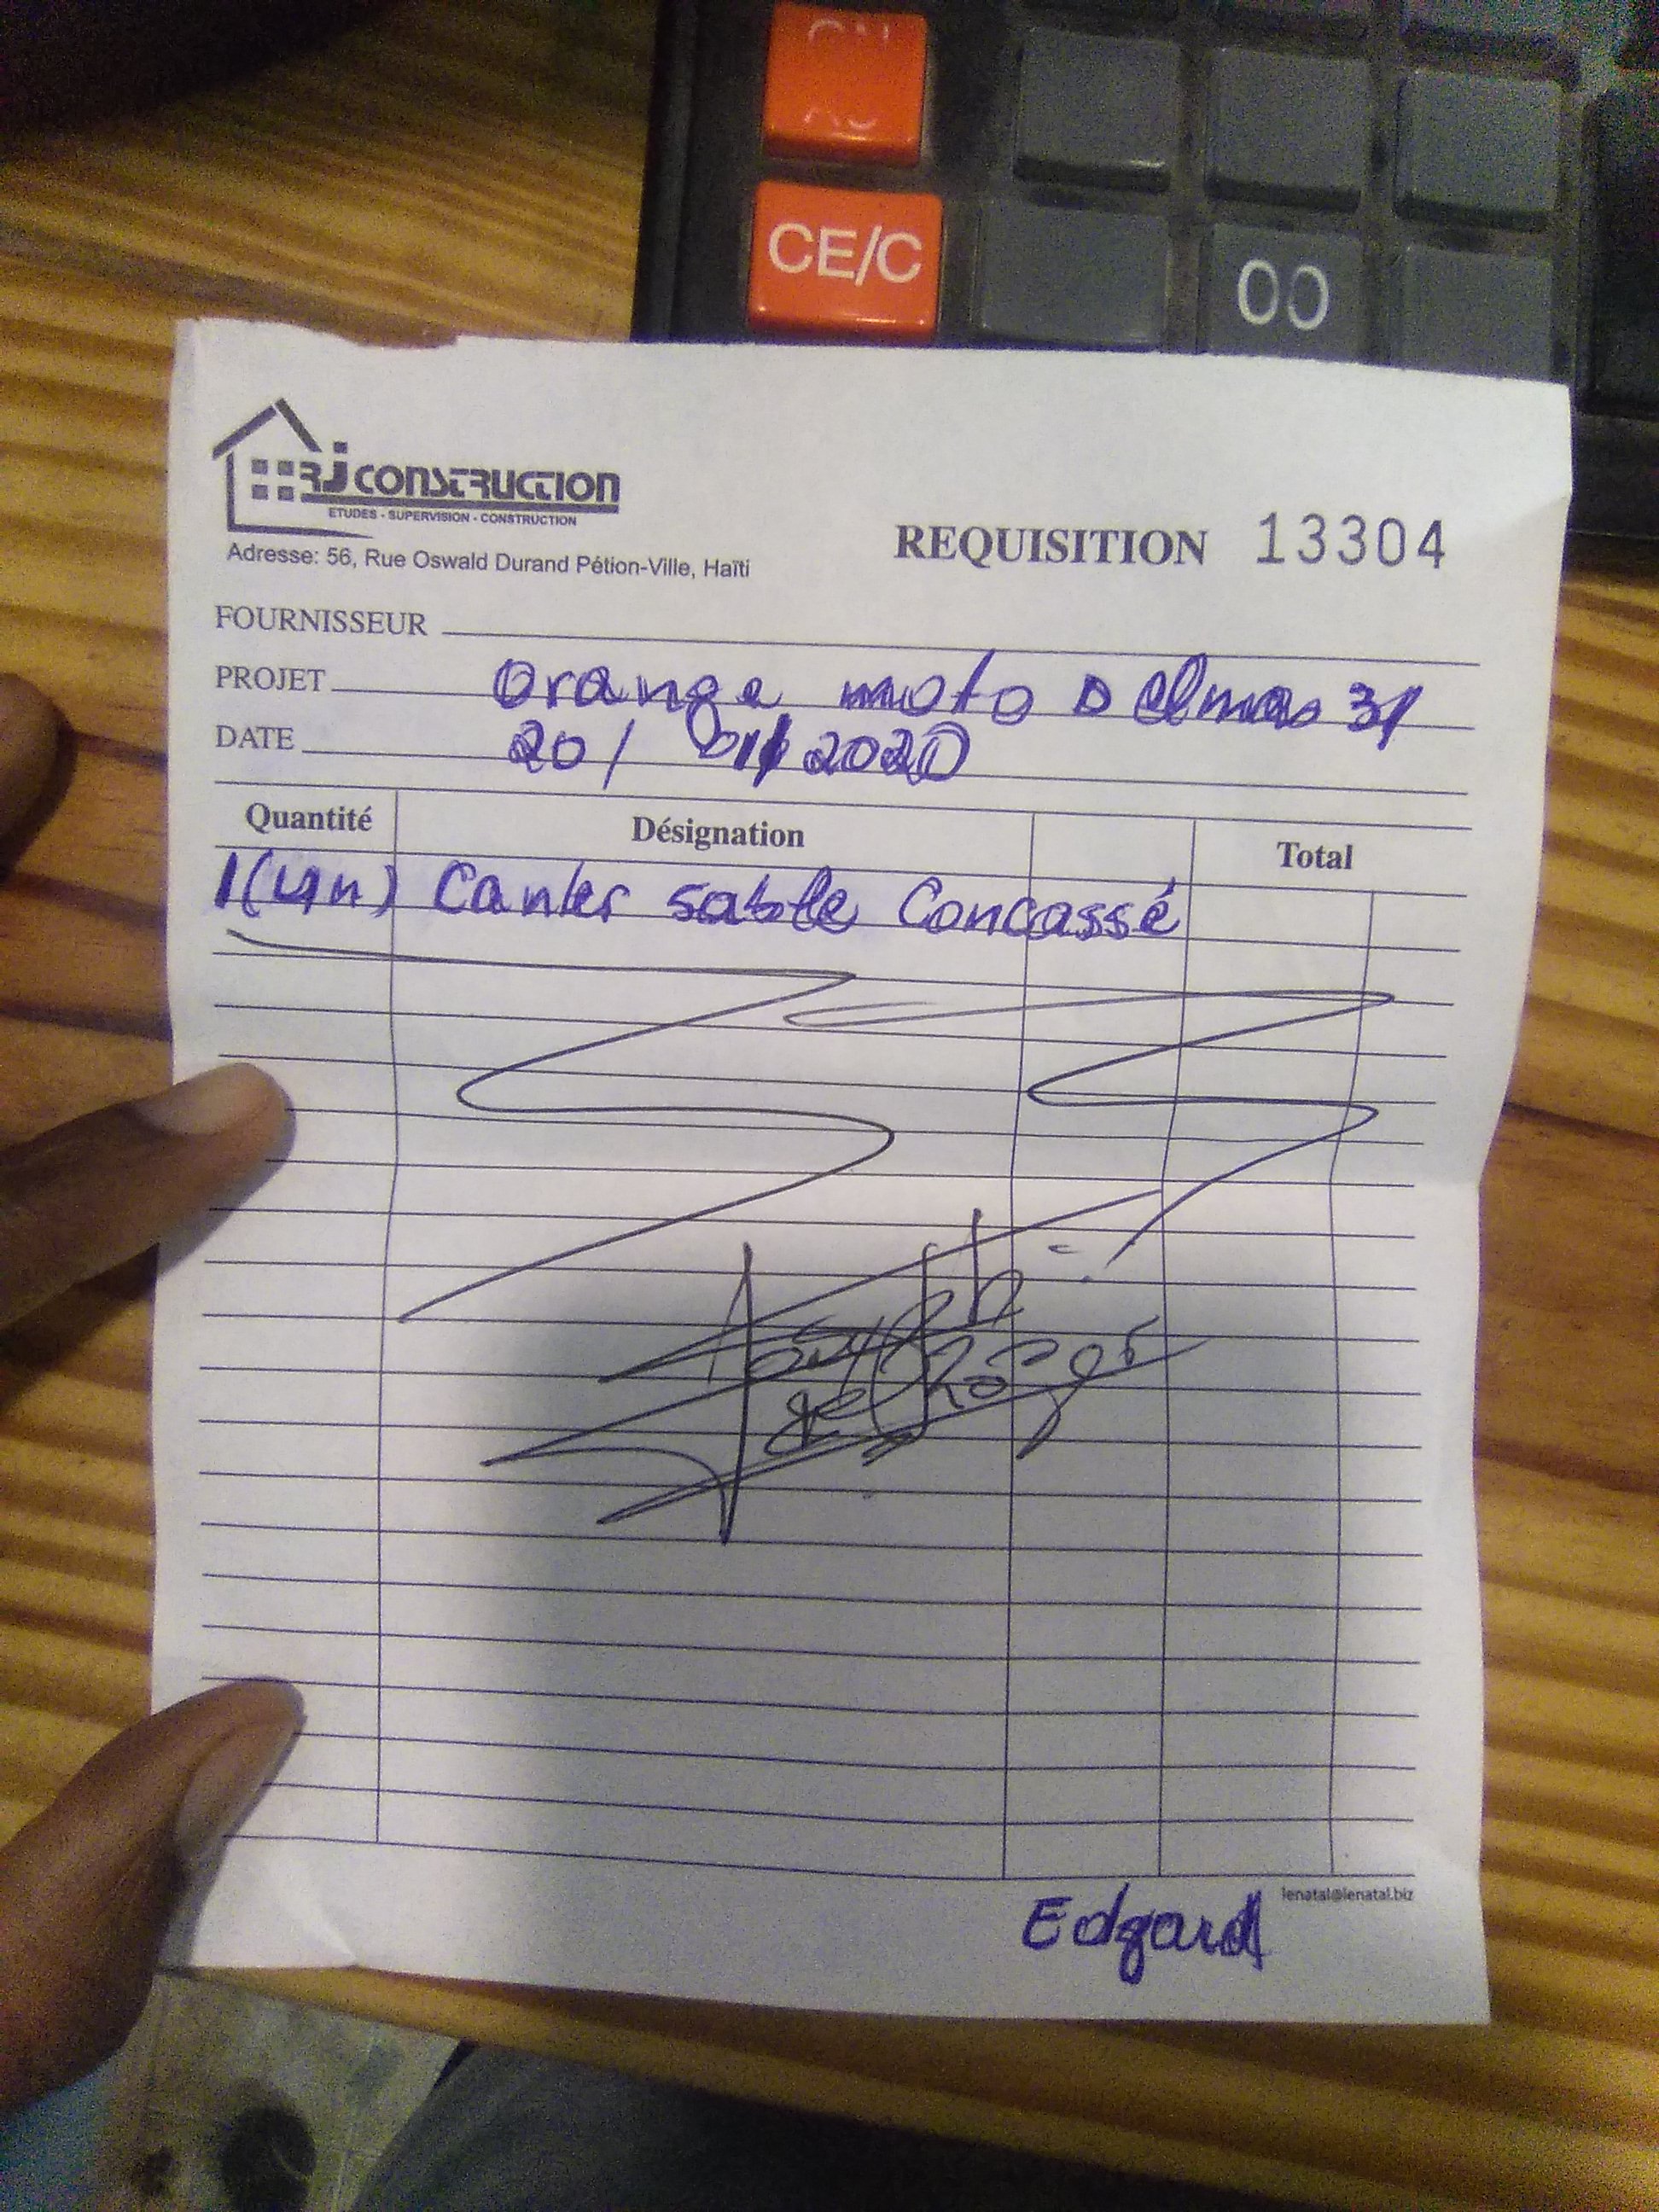 CE/C
00
RJ CONSTRUCTION
ETUDES - SUPERVISION - CONSTRUCTION
Adresse: 56, Rue Oswald Durand Pétion-Ville, Haïti
REQUISITION 13304
FOURNISSEUR
PROJET Orange moto Delmas 31
DATE 20/ 01/2020
Quantité Désignation Total
1(un) Camler sable Concassé
lenatal@lenatal.biz
Edgard